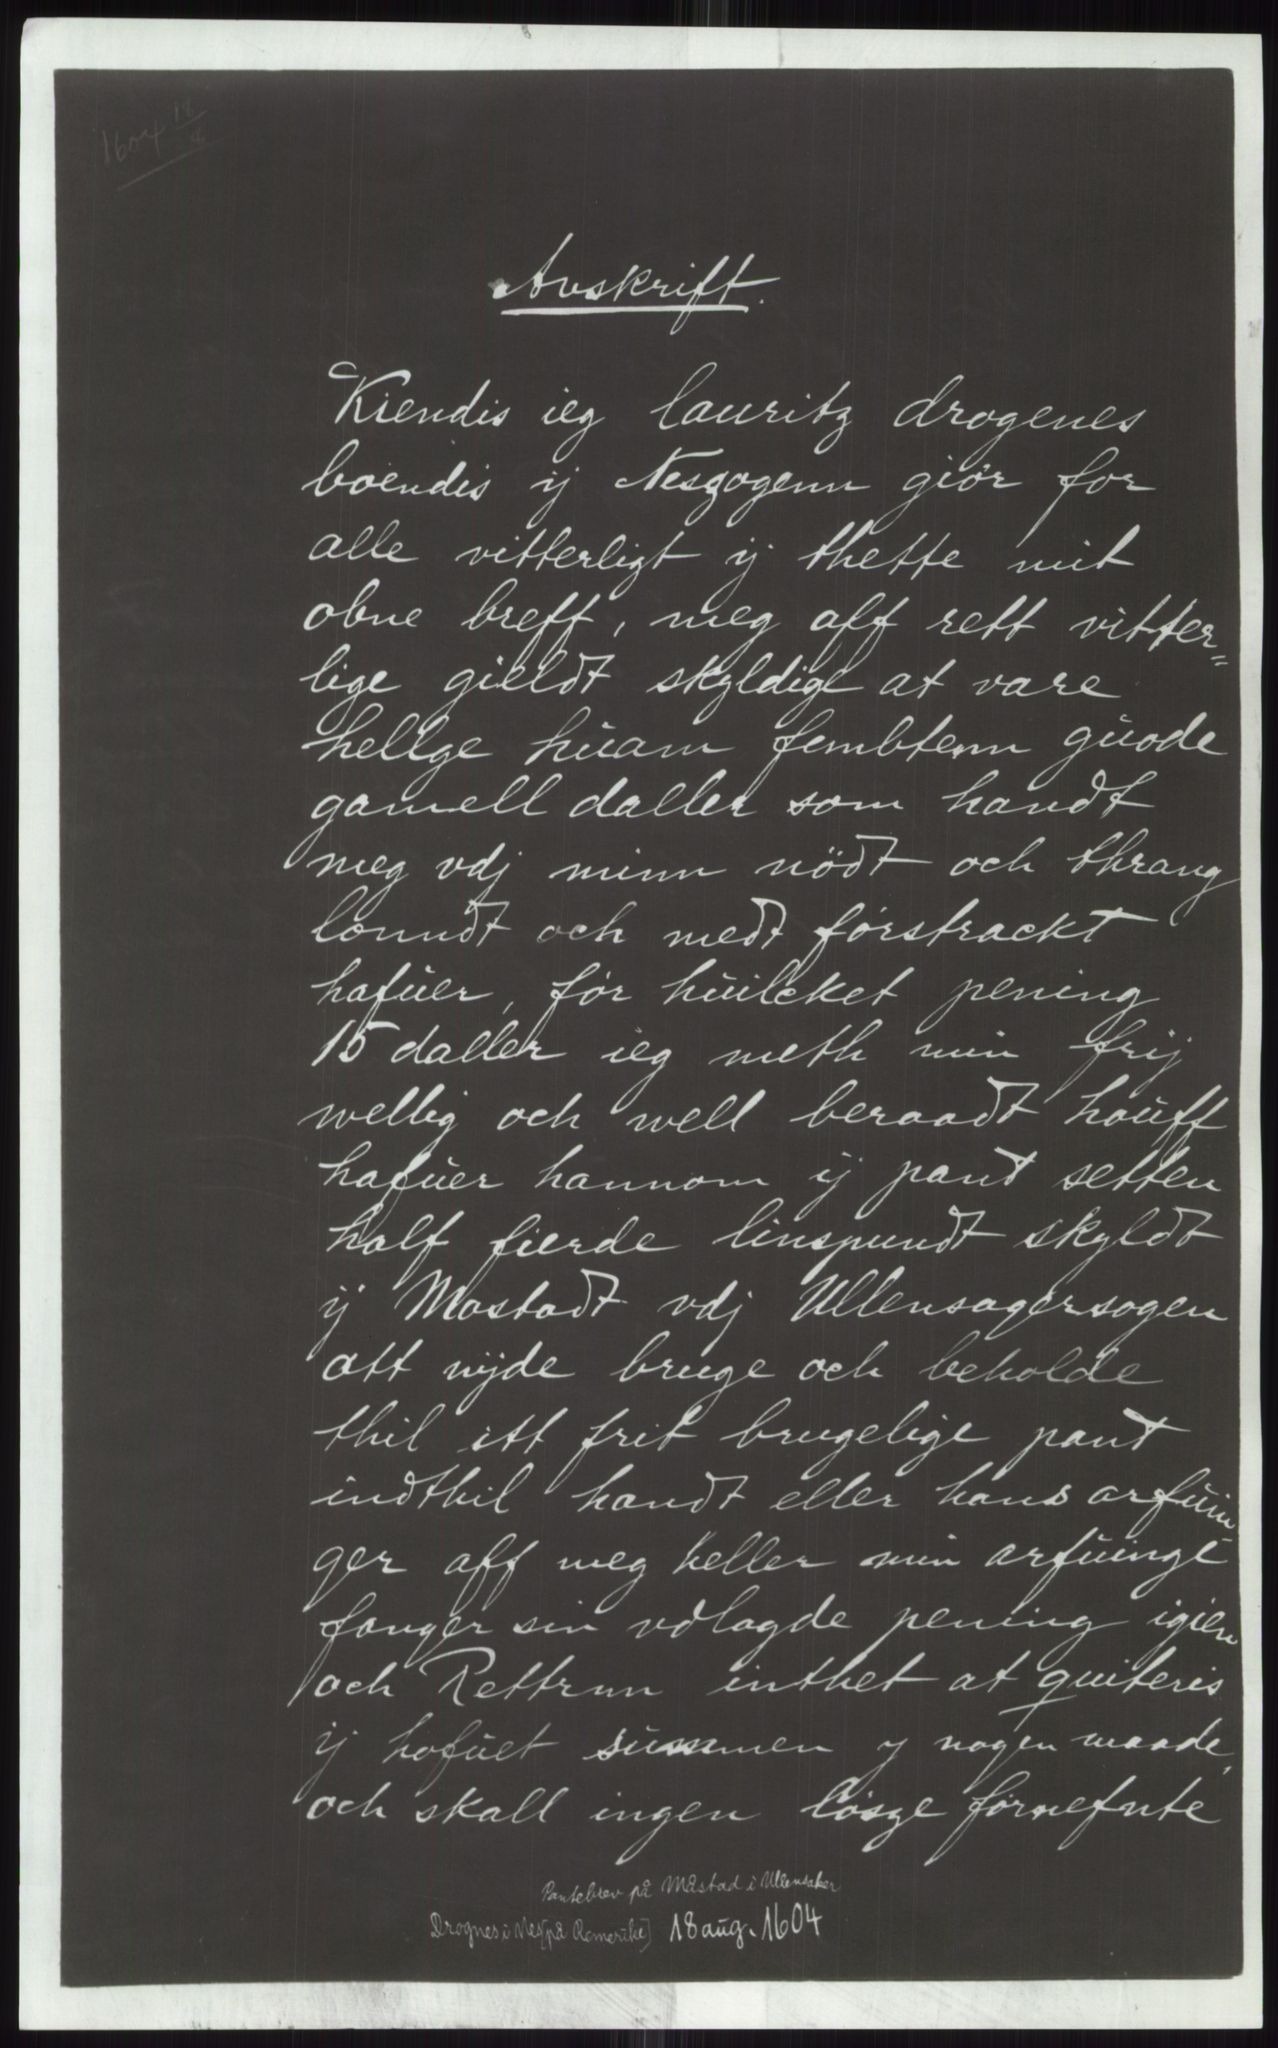 1604 18/8
Avskrift.
Kiendis ieg lauritz drogenes
boendis ij Neszogenn giör for
alle vitterligt ij thette mit
obne breff, meg aff rett vitter=
lige gieldt skyldige at vare
hellge huam fembtenn guode
gamell daller som handt
meg vdj minn nödt och thrang
lonndt och medt forstrackt
hafuer, for huilcket pening
15 daller ieg meth min frij
wellig och well beraadt houff
hafuer hannom ij pant setten
half fierde linspundt skyldt
ij Mostadt vdj Ullensagersogen
att nijde bruge och beholde
thil itt frit brugelige pant
indthil handt eller hans arfuin
ger aff meg heller min arfuinge
fanger sin vdlagde pening igien
och Rettrun inthet at quiteris
ij hofuet summen y nogen maade,
och skall ingen lösze fornefnte
Pantebrev på Måstad i Ullensaker
Drognes i Nes [på Romerike] 18 aug. 1604